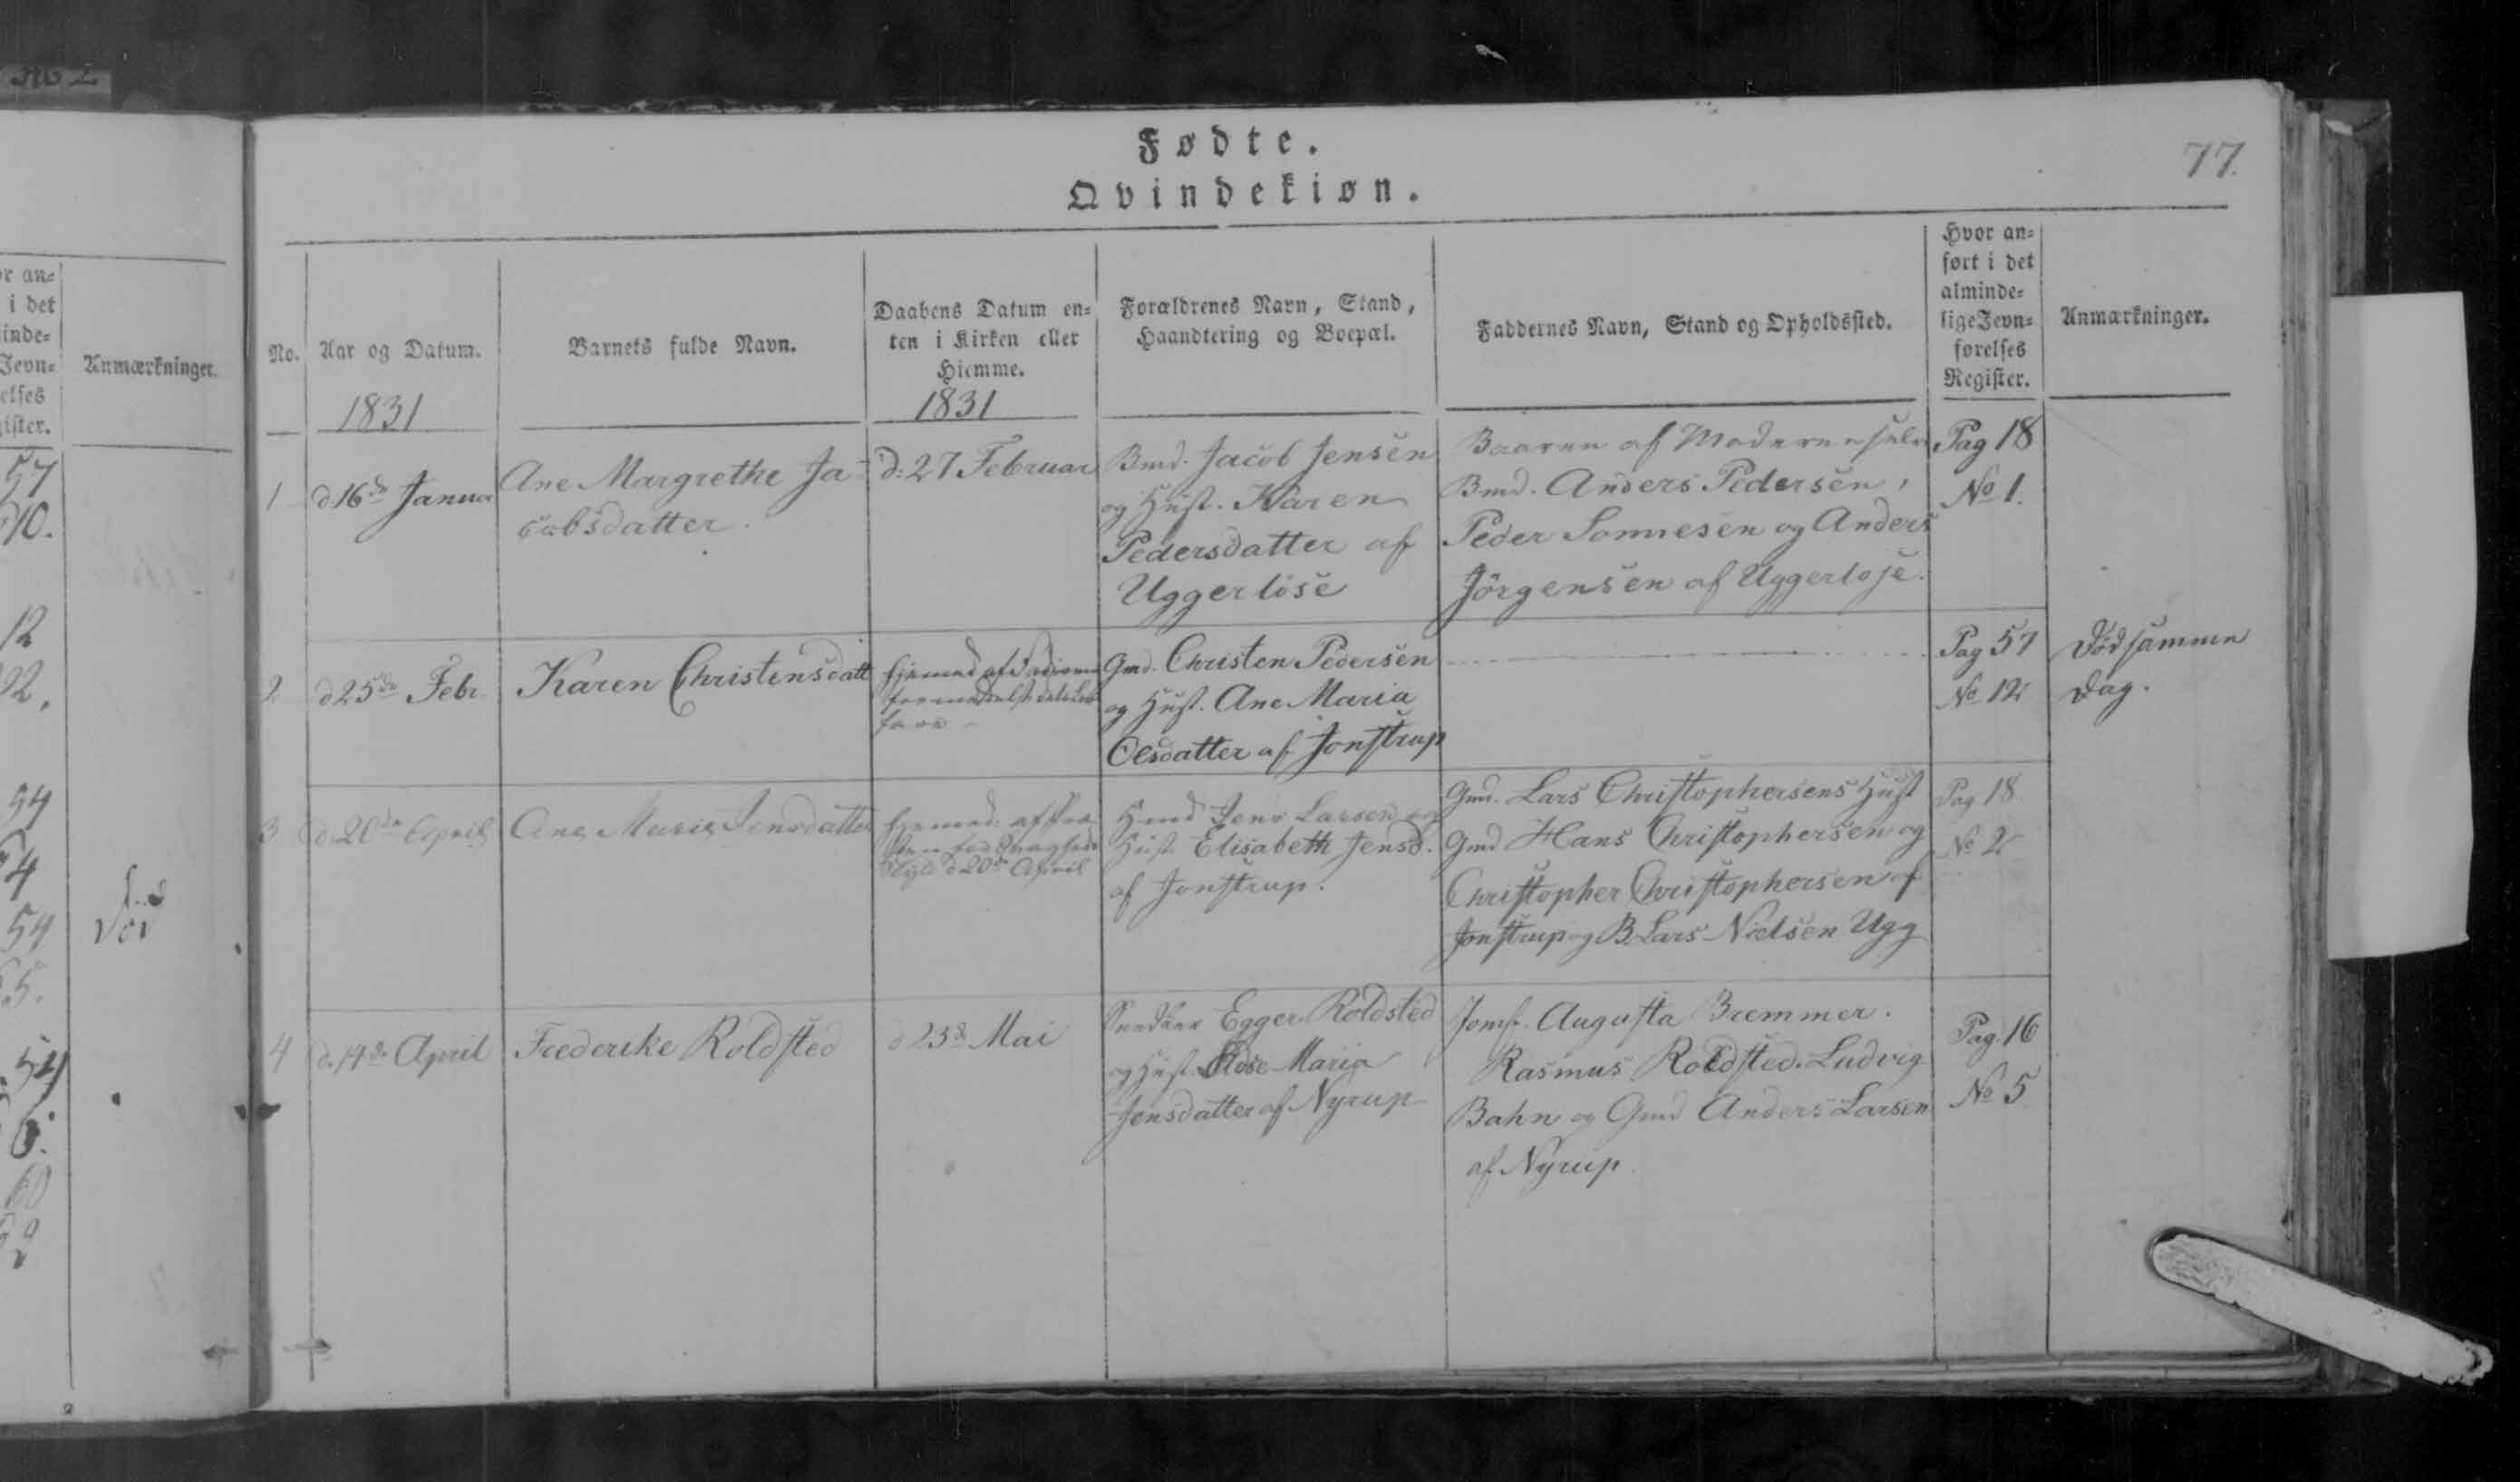 No 2
Fødte.
Qvindekiøn.
77.
or an=
i det
inde=
Jevn=
elses
gister.
Anmærkninger.
57
10.
12
22.
54
54
5.
54
6.
60
Død
No.
Aar og Datum.
1831
Barnets fulde Navn.
Daabens Datum en=
ten i Kirken eller
Hiemme.
1831
Forældrenes Navn, Stand,
Haandtering og Boepæl.
Faddernes Navn, Stand og Opholdssted.
Hvor an=
ført i det
alminde=
lige Jevn=
førelses
Register.
Anmærkninger.
1
d 16de Januar
Ane Margrethe Ja-
cobsdatter.
d. 27 Februar
Bmd. Jacob Jensen
og Hust. Karen
Pedersdatter af
Uggerlöse
Baaren af Moderen selv
Bmd. Anders Pedersen,
Peder Sonnesen og Anders
Jörgensen af Uggerlöse.
Pag 18
No 1.
2
d 25de Febr.
Karen Christensdatt
Hjemmed af
fare
Gmd. Christen Pedersen
og Hust. Ane Maria
Olsdatter af Jonstrup
Pag 57
No 12
Död samme
Dag.
3
d. 20de April
Ane Marie Jensdatter
Hjemmed. af
Skyld d 20de April
Hmd Jens Larsen og
Hust. Elisabeth Jensd.
af Jonstrup.
Gmd. Lars Christophersens Hust
Gmd Hans Christophersen og
Christopher Christophersen af
Jonstrup og B. Lars Nielsen Ugg
Pag 18
No 2
4
d. 14de April
Frederike Roldsted
d 23de Mai
Snedker Egger Roldsted
og Hust. Maria
Jensdatter af Nyrup
Jomfr. Augusta Bremmer.
Rasmus Roldsted. Ludvig
Bahn og Gmd Anders Larsen
af Nyrup.
Pag. 16
No 5
2